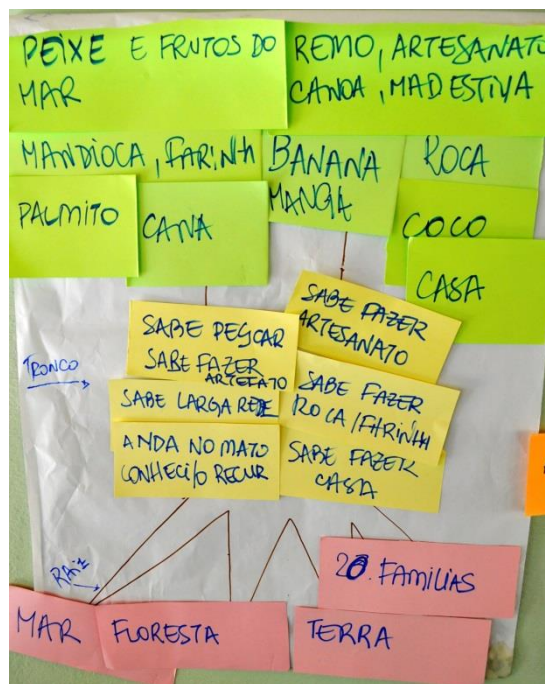 PEIXE E FRUTOS DO
MAR
REMO, ARTESANATO
CANOA, MADESTIVA
MANDIOCA, FARINHA
BANANA
MANGA
ROCA
PALMITO
CANA
COCO
CASA
SABE PESCAR
SABE FAZER
ARTEFATO
SABE FAZER
ARTESANATO
TRONCO
SABE LARGA REDE
SABE FAZER
ROCA/FARINHA
ANDA NO MATO
CONHECI/O RECUR
SABE FAZER
CASA
RAIZ
20. FAMILIAS
MAR
FLORESTA
TERRA